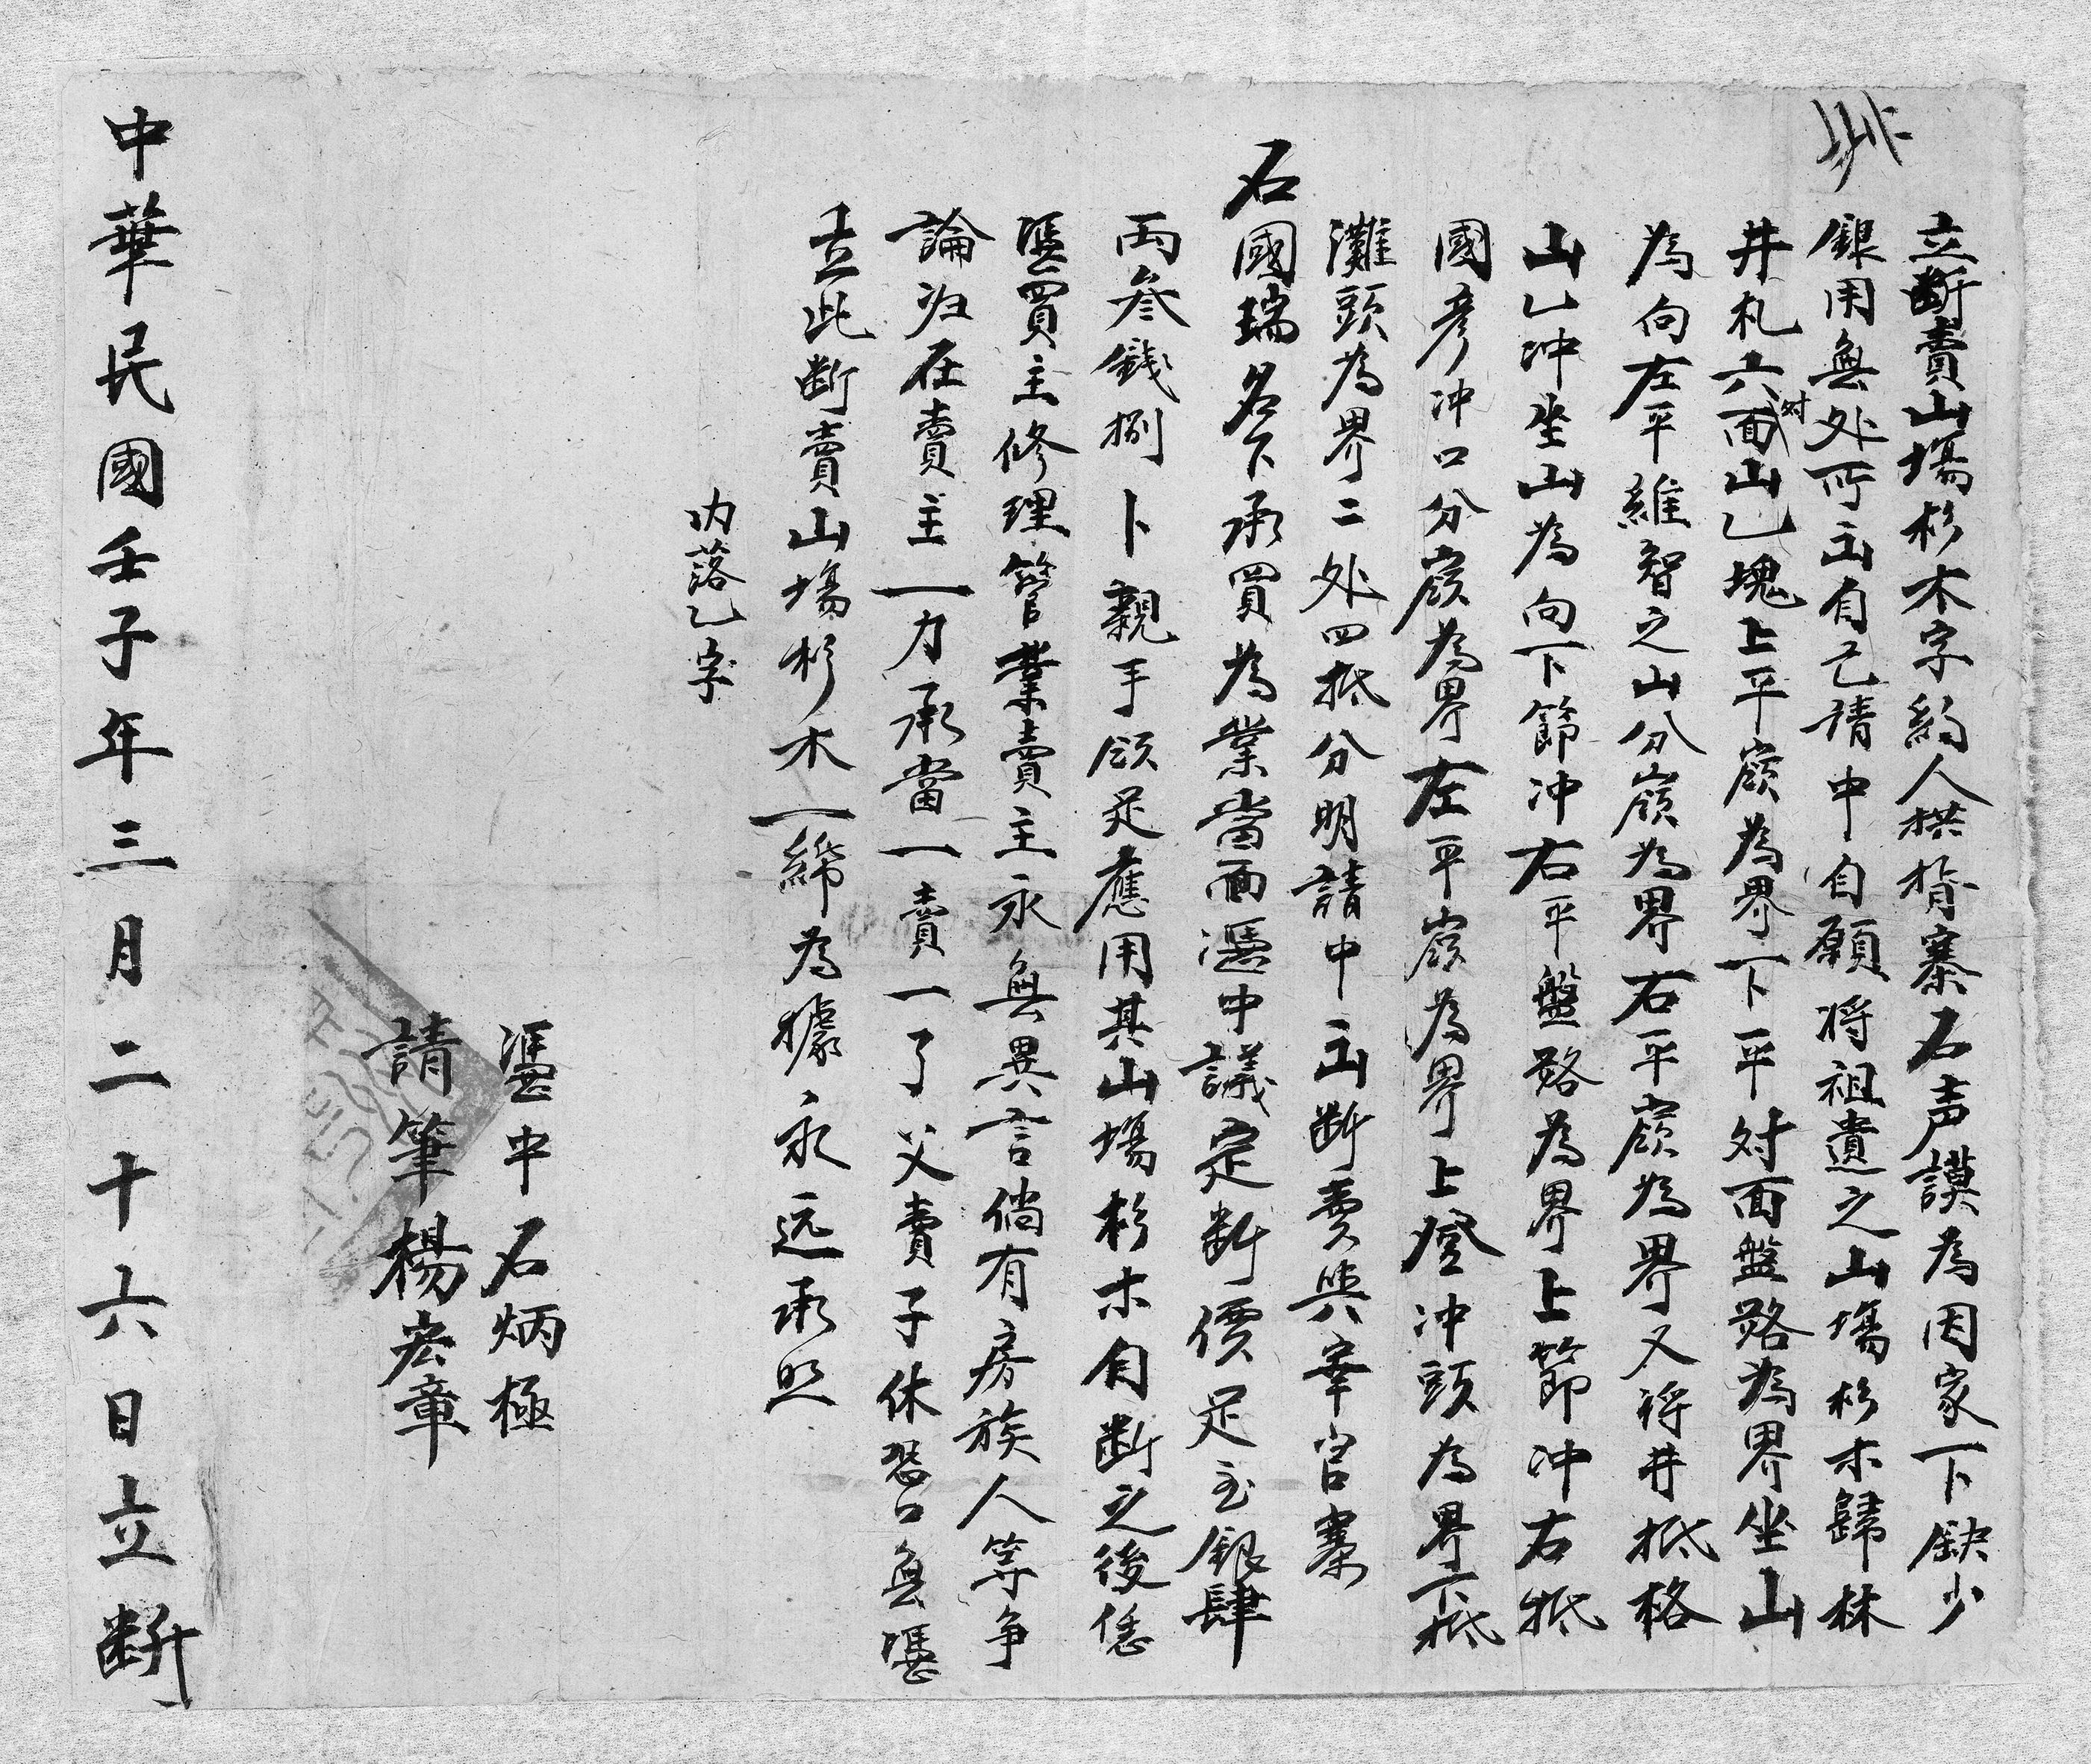 立断賣山塲杉木字約人拱揹寨石声謨為因家下缺少
銀用無处所出自己請中自願将祖遺之山塲杉木歸林
井札六对面山乙塊上平嶺為界下平对面盤路為界坐山
為向左平維智之山分嶺為界右平嶺為界又将井抵格
山乙冲坐山為向下節冲右平盤路為界上節冲右抵
國彦冲口分嶺為界左平嶺為界上登冲頭為界下抵
灘頭為界二处四抵分明請中出断賣與宰官寨
石國瑞名下承買為業當面憑中議定断價足玉銀肆
両叄錢捌卜親手領足應用其山塲杉木自断之後恁
憑買主修理管業賣主永無異言倘有房族人等争
論归在賣主一力承當一賣一了父賣子休恐口無憑
立此断賣山塲杉木一紙為據永远承照
内落乙字
憑中石炳極
請筆楊宏章
中華民國壬子年三月二十六日立断